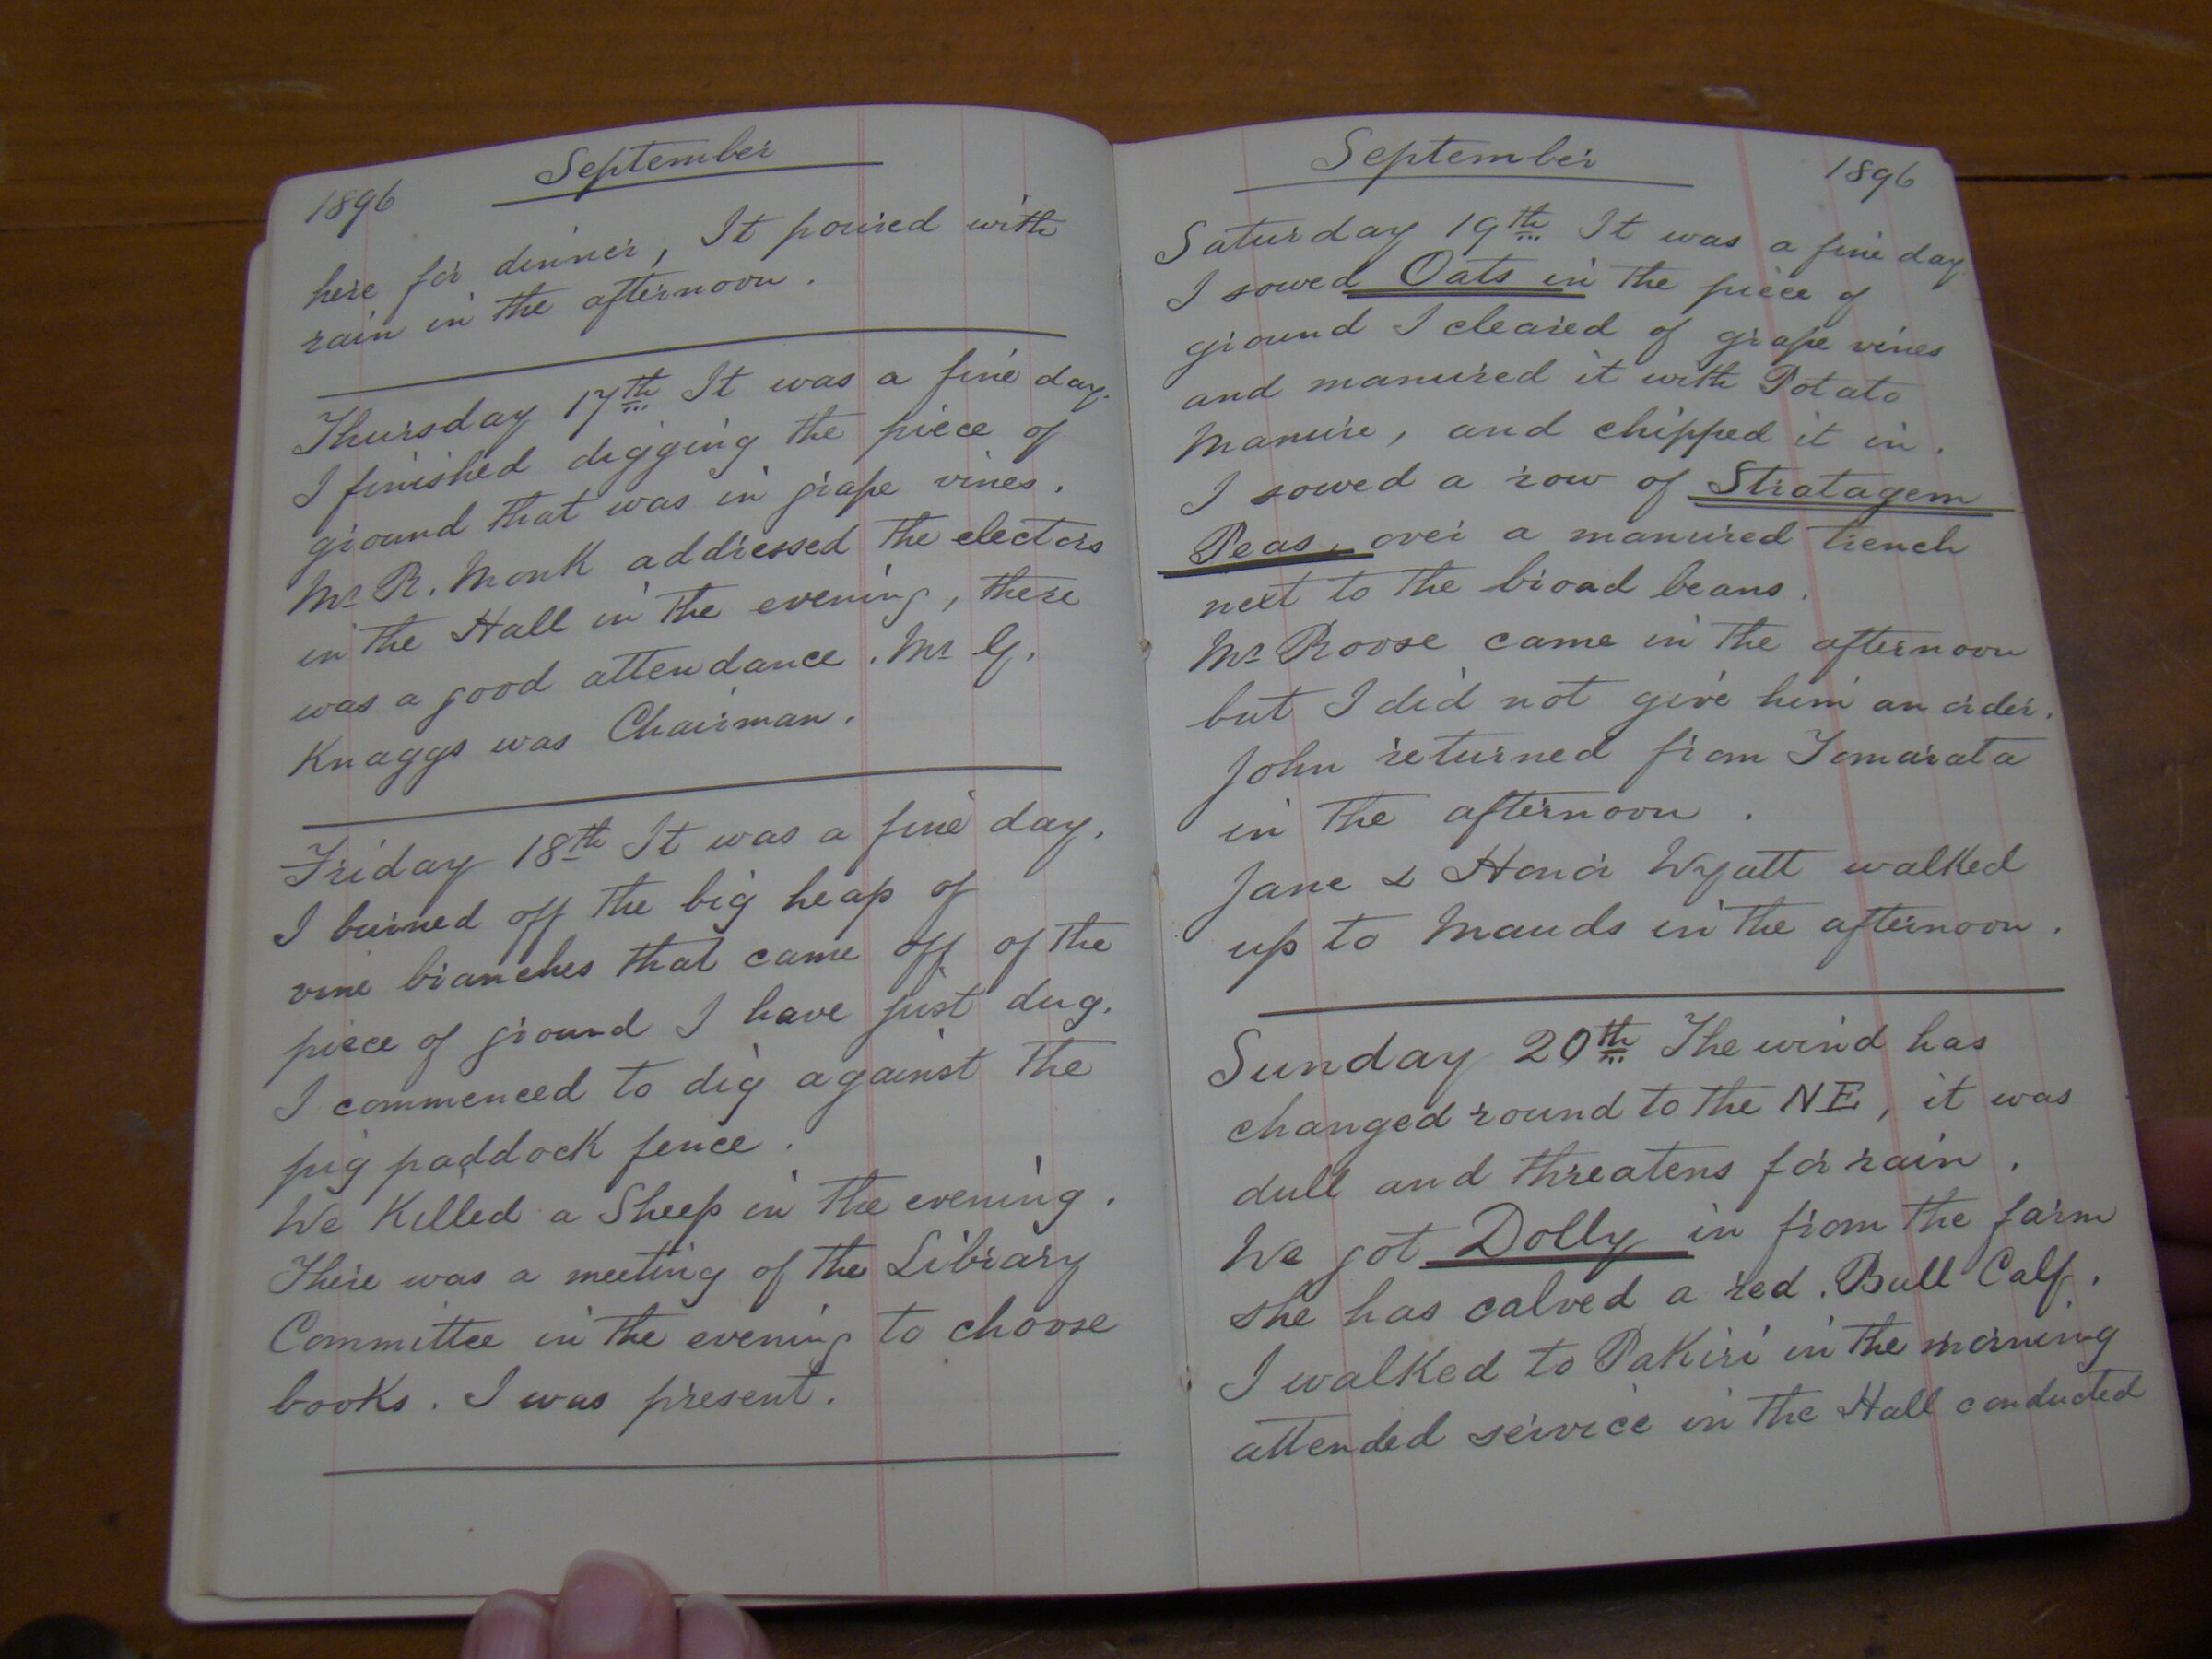 September
1896
here for dinner, It poured with
rain in the afternoon.
Thursday 17th It was a fine day.
I finished digging the piece of
ground that was in grape vines.
Mr R. Monk addressed the electors
in the Hall in the evening, there
was a good attendance. Mr G.
Knaggs was Chairman.
Friday 18th It was a fine day.
I burned off the big heap of
vine branches that came off of the
piece of ground I have just dug.
I commenced to dig against the
pig paddock fence.
We Killed a Sheep in the evening.
There was a meeting of the Library
Committee in the evening to choose
books. I was present.
September
1896
Saturday 19th It was a fine day
I sowed Oats in the piece of
ground I cleared of grape vines
and manured it with Potato
Manure, and chipped it in.
I sowed a row of Stratagem
Peas, over a manured trench
next to the broad beans.
Mr Roose came in the afternoon
but I did not give him an order.
John returned from Tomarata
in the afternoon.
Jane & Honor Wyatt walked
up to Mauds in the afternoon.
Sunday 20th The wind has
changed round to the NE, it was
dull and threatens for rain.
We got Dolly in from the farm
she has calved a red. Bull Calf.
I walked to Pakiri in the morning
attended service in the Hall conducted